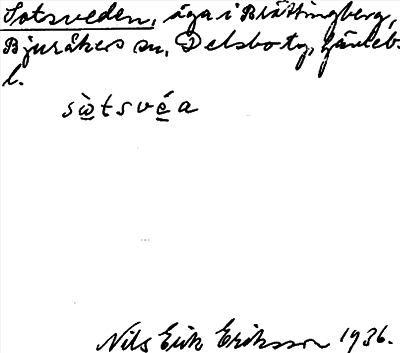 Sotsveden, äga i Brättingberg,
Bjuråkers sn, Delsbo tg, Gävleb.
l.
sὼtsvéa
Nils Erik Eriksson 1936.